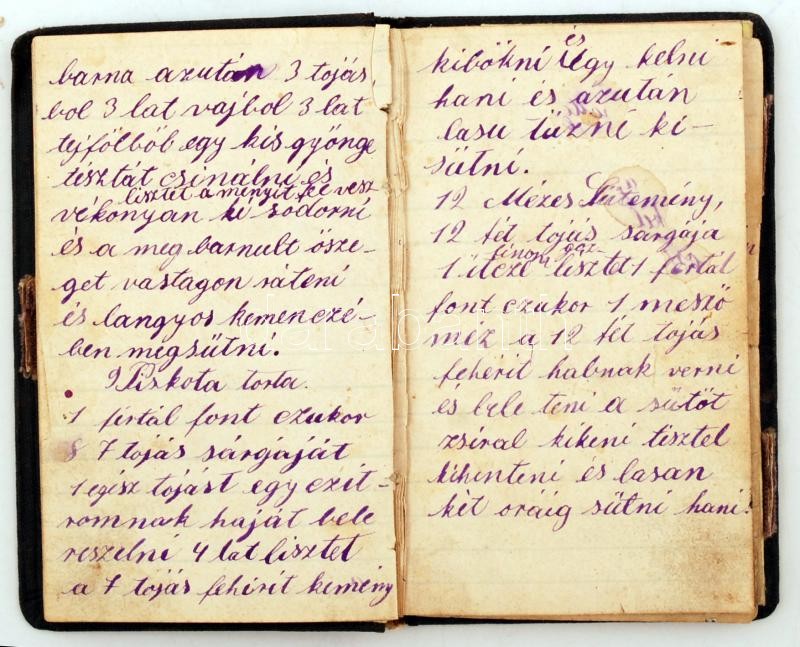 barna azután 3 tojás
ból 3 lat vajbol 3 lat
tejfölböl egy kis gyönge
tisztát csinálni és
lisztet a menyit fel vesz
vékonyan ki sodorni
és a meg barnult ösze-
get vastagon ráteni
és langyos kemenczé-
ben megsütni.
9 Piskota torta.
1 fértál font czukor
8 7 tojás sárgáját
1 egész tojást egy czit-
romnak haját bele
reszelni 4 lat lisztet
a 7 tojás fehérit kemény
és
kibökni úgy kelni
hani és azután
lasu tüzni ki-
sütni.
12 Mézes Sütemény,
12 tét tojás sárgája
finom
1 itcze lisztet 1 fértál
font czukor 1 meszö
méz a 12 tét tojás
fehérit habnak verni
és bele teni a sütöt
zsiral kikeni lisztel
kihinteni és lasan
két oráig sütni hani.